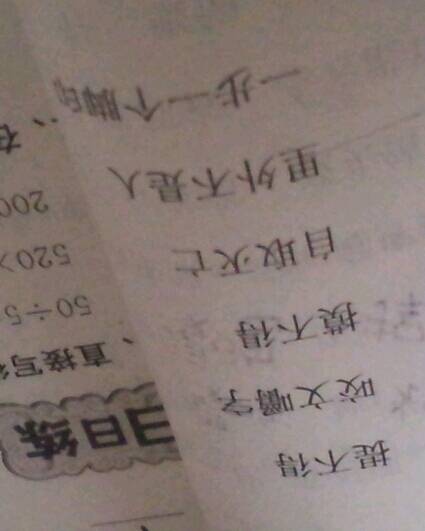 提不得
咬文嚼字
摸不得
自取灭亡
里外不是人
一步一个脚印
日练
、直接写
50÷5
520×
200
、在